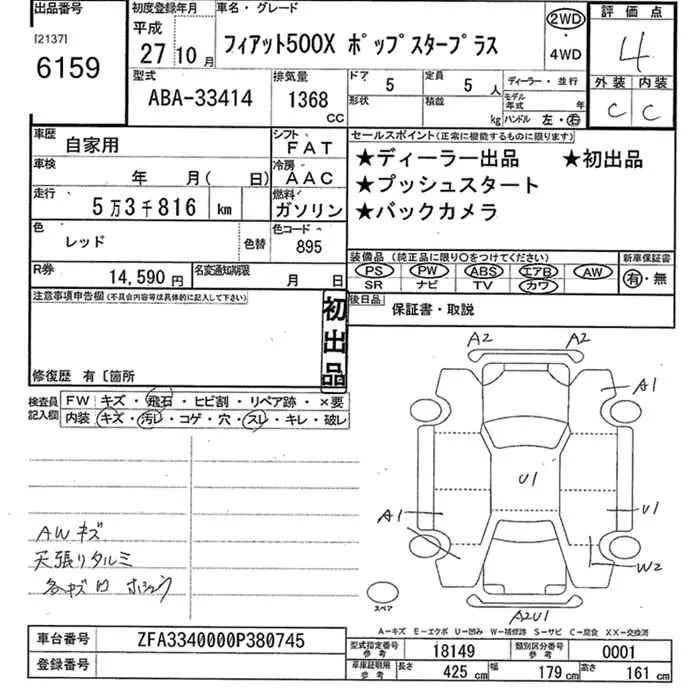 出品番号
[2137]
6159
初度登録年月
平成
27 10月
車名・グレード
フィアット500X ポップスタープラス
2WD
・
4WD
評価点
4
外装 内装
C C
型式
ABA-33414
排気量
1368
CC
ドア 5
定員 5 人
形状
積載 kg
ディーラー・並行
モデル年式 年
ハンドル 左・右
車歴 自家用
シフト FAT
車検 年 月( 日)
冷房 AAC
走行 5万3千816 km
燃料 ガソリン
色 レッド
色替
色コード 895
R券 14,590円
名変通知期限 月 日
セールスポイント(正常に機能するものに限ります)
★ディーラー出品 ★初出品
★プッシュスタート
★バックカメラ
装備品(純正品に限り〇をつけてください)
新車保証書
PS PW ABS エアB AW
SR ナビ TV カワ
有・無
後日品
保証書・取説
注意事項申告欄(不具合内容等は具体的に記入して下さい)
初出品
修復歴 有〔箇所
検査員記入欄
FW キズ・飛石・ヒビ割・リペア跡・×要
内装 キズ・汚レ・コゲ・穴・スレ・キレ・破レ
AWキズ
天張リタルミ
A2 A2
A1
U1
A1
U1
W2
A2U1
スペア
A-キズ E-エクボ U-凹み W-補修跡 S-サビ C-腐食 XX-交換済
車台番号 ZFA3340000P380745
登録番号
型式指定番号 参考 18149
類別区分番号 参考 0001
車庫証明用 参考
長さ 425 cm
幅 179 cm
高さ 161 cm